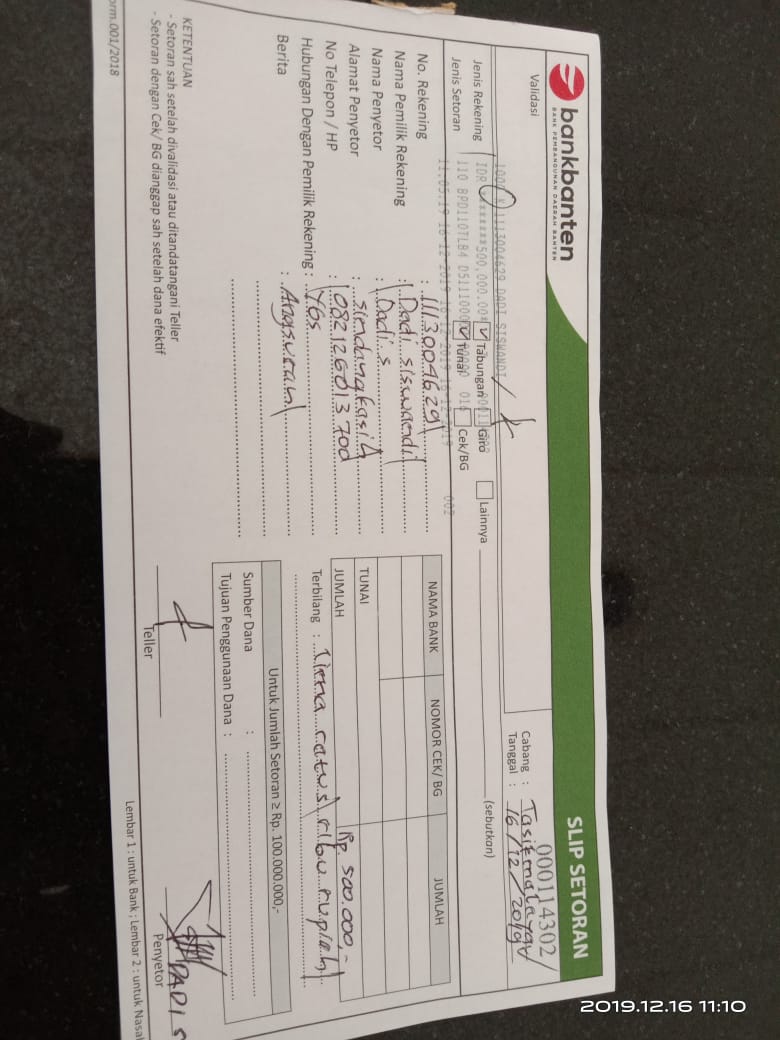 bankbanten
BANK PEMBANGUNAN DAERAH BANTEN
SLIP SETORAN
000114302
Validasi
Cabang : Tasikmalaya
Tanggal : 16/12/2019
1113004629 DADI SISWANDI
Jenis Rekening
IDR ********500,000.00*
Tabungan
Giro
Lainnya
(sebutkan)
Jenis Setoran
110 BPD110TLB4
Tunai
Cek/BG
11.05.19 16-12-2019 16-12-2019 16-12-2019
002
No. Rekening : 1113004629
Nama Pemilik Rekening : Dadi siswandi
Nama Penyetor : Dadi.s
Alamat Penyetor : sindangkasih
No Telepon / HP : 082126013700
Hubungan Dengan Pemilik Rekening : Ybs
Berita : Angsuran
NAMA BANK
NOMOR CEK/ BG
JUMLAH
TUNAI
JUMLAH
Rp. 500.000,-
Terbilang : Lima ratus ribu rupiah
Untuk Jumlah Setoran ≥ Rp. 100.000.000,-
Sumber Dana :
Tujuan Penggunaan Dana :
KETENTUAN
- Setoran sah setelah divalidasi atau ditandatangani Teller
- Setoran dengan Cek/ BG dianggap sah setelah dana efektif
Teller
DADI S
Penyetor
orm.001/2018
Lembar 1 : untuk Bank ; Lembar 2 : untuk Nasab
2019.12.16 11:10